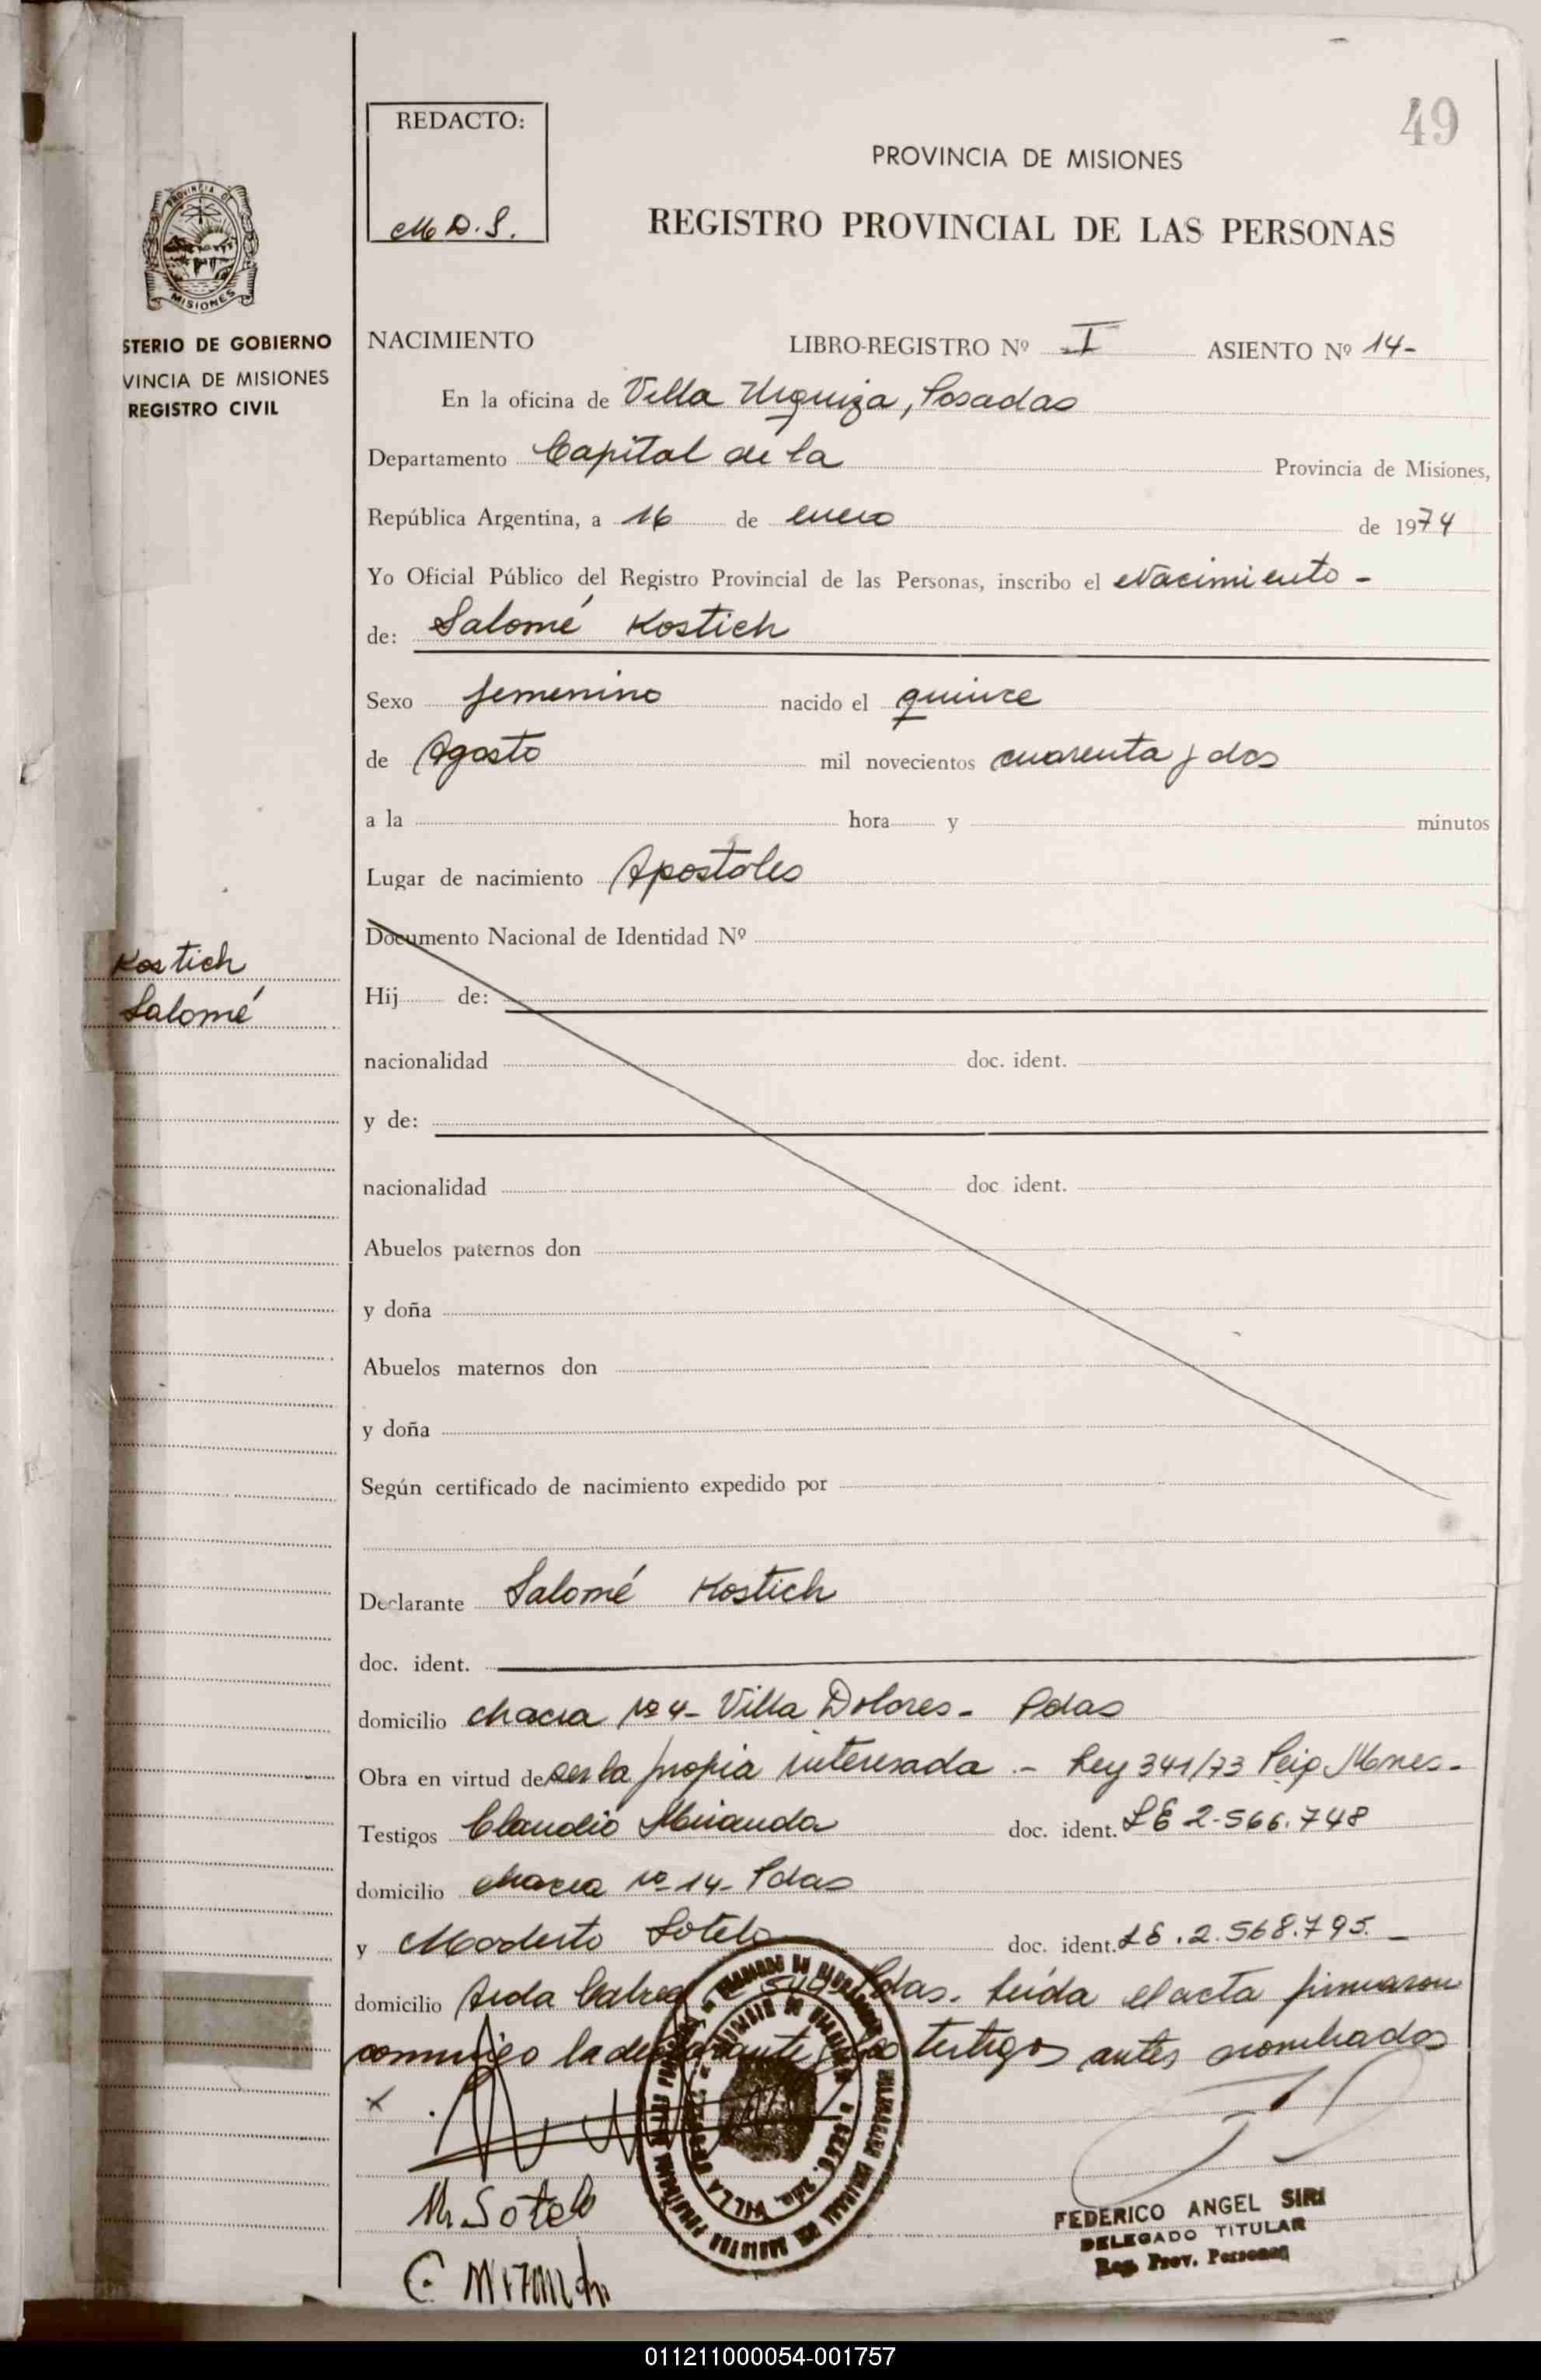 49
REDACTO:
M D. S.
PROVINCIA DE MISIONES
REGISTRO PROVINCIAL DE LAS PERSONAS
PROVINCIA DE
MISIONES
STERIO DE GOBIERNO
VINCIA DE MISIONES
REGISTRO CIVIL
NACIMIENTO LIBRO-REGISTRO Nº I ASIENTO Nº 14-
En la oficina de Villa Urquiza, Posadas
Departamento Capital de la Provincia de Misiones,
República Argentina, a 16 de enero de 1974
Yo Oficial Público del Registro Provincial de las Personas, inscribo el Nacimiento -
de: Salomé Kostich
Sexo femenino nacido el quince
de Agosto mil novecientos cuarenta y dos
a la hora y minutos
Lugar de nacimiento Apostoles
Documento Nacional de Identidad Nº
Kostich
Salomé
Hij de:
nacionalidad doc. ident.
y de:
nacionalidad doc. ident.
Abuelos paternos don
y doña
Abuelos maternos don
y doña
Según certificado de nacimiento expedido por
Declarante Salomé Kostich
doc. ident.
domicilio chacra Nº 4- Villa Dolores- Pdas
Obra en virtud de ser la propia interesada .- Ley 341/73 Misiones.
Testigos Claudio Miranda doc. ident. LE 2-566.748
domicilio chacra Nº 14- Pdas
y Modesto Sotelo doc. ident. LE. 2.568.795.
domicilio Avda Cabred Pdas. Leída el acta firmaron
conmigo la declarante y los testigos antes nombrados
x
M. Sotelo
C. Miranda
FEDERICO ANGEL SIRI
DELEGADO TITULAR
Reg. Prov. Personas
011211000054-001757